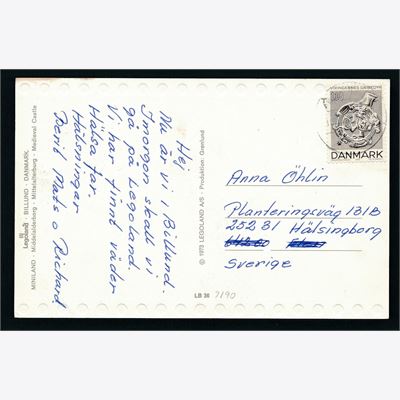 Hej
Nu är vi i Billund.
Imorgon skall vi
gå på Legoland.
Vi har fint väder
Hälsa far.
Hälsningar
Berit Mats o Richard
Legoland - BILLUND - DANMARK
MINILAND - Middelalderborg - Mittelalterburg - Medieval Castle
© 1973 LEGOLAND A/S - Produktion: Grønlund
LB 36 7190
DANMARK
Anna Öhlin
Planteringsväg 131B
252 31 Hälsingborg
Sverige